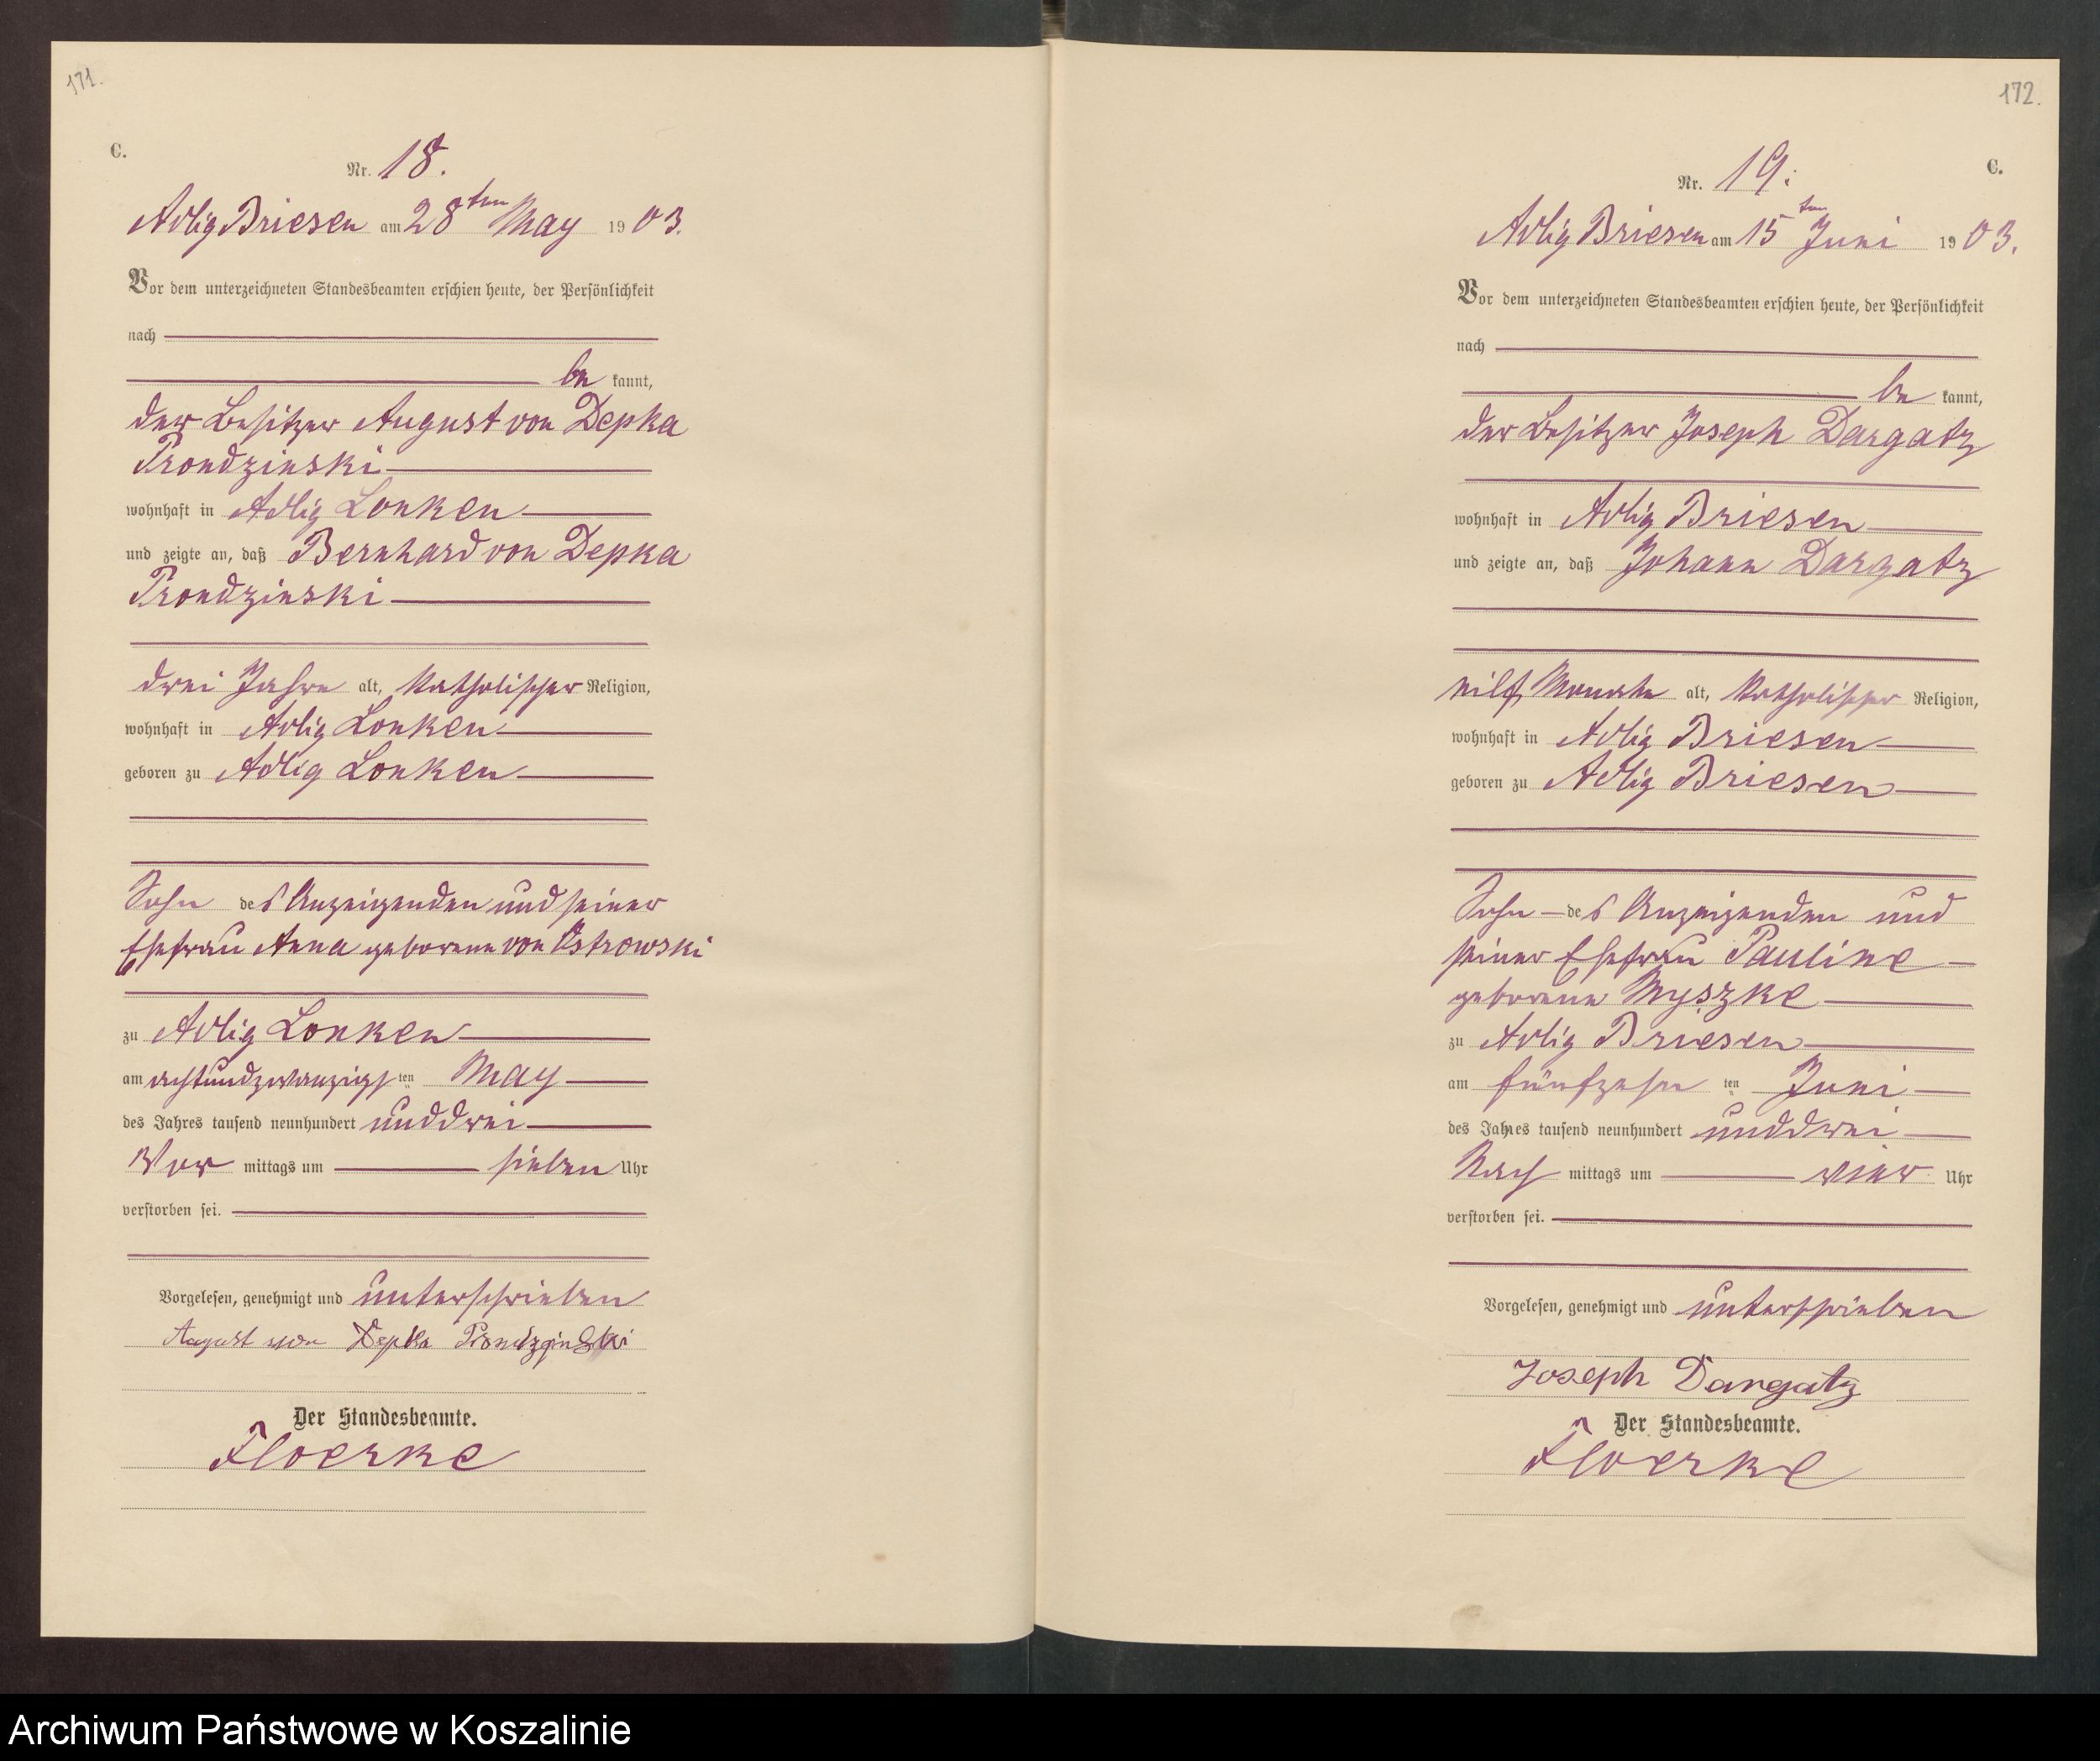 171.
C.
Nr. 18.
Adlig Briesen am 28ten May 1903.
Vor dem unterzeichneten Standesbeamten erschien heute, der Persönlichkeit
nach
be kannt,
der Besitzer August von Depka
Prondzinski
wohnhaft in Adlig Lonken
und zeigte an, daß Bernhard von Depka
Prondzinski
drei Jahre alt, katholischer Religion,
wohnhaft in Adlig Lonken
geboren zu Adlig Lonken
Sohn des Anzeigenden und seiner
Ehefrau Anna geborene von Ostrowski
zu Adlig Lonken
am achtundzwanzigsten May
des Jahres tausend neunhundert unddrei
Vor mittags um sieben Uhr
verstorben sei.
Vorgelesen, genehmigt und unterschrieben
August von Depka Prondzginski
Der Standesbeamte.
Floerke
172.
C.
Nr. 19.
Adlig Briesen am 15ten Juni 1903.
Vor dem unterzeichneten Standesbeamten erschien heute, der Persönlichkeit
nach
be kannt,
der Besitzer Joseph Dargatz
wohnhaft in Adlig Briesen
und zeigte an, daß Johann Dargatz
eilf Monate alt, katholischer Religion,
wohnhaft in Adlig Briesen
geboren zu Adlig Briesen
Sohn des Anzeigenden und
seiner Ehefrau Pauline
geborene Myszke
zu Adlig Briesen
am fünfzehn ten Juni
des Jahres tausend neunhundert unddrei
Nach mittags um vier Uhr
verstorben sei.
Vorgelesen, genehmigt und unterschrieben
Joseph Dargatz
Der Standesbeamte.
Floerke
Archiwum Państwowe w Koszalinie